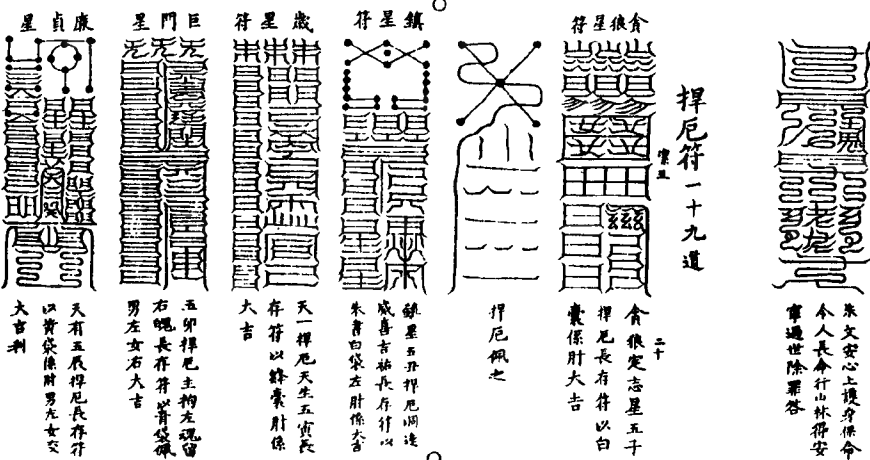 朱文安心上護身保命
令人長命行山林得安
寧過世除罪咎
捍厄符一十九道
二十
貪狼星符
貪狼定志星五子
捍厄長存符以白
囊係肘大吉
捍厄佩之
鎮星符
鎮星五丑捍厄洞達
咸喜吉祐長存符以
朱書白袋左肘係大吉
歲星符
天一捍厄天生五寅長
存符以絳囊肘係
大吉
巨門星
五卯捍厄主拘左魂留
右魄長存符以青袋佩
男左女右大吉
廉貞星
天有五辰捍厄長存符
以黃袋係肘男左女交
大吉利